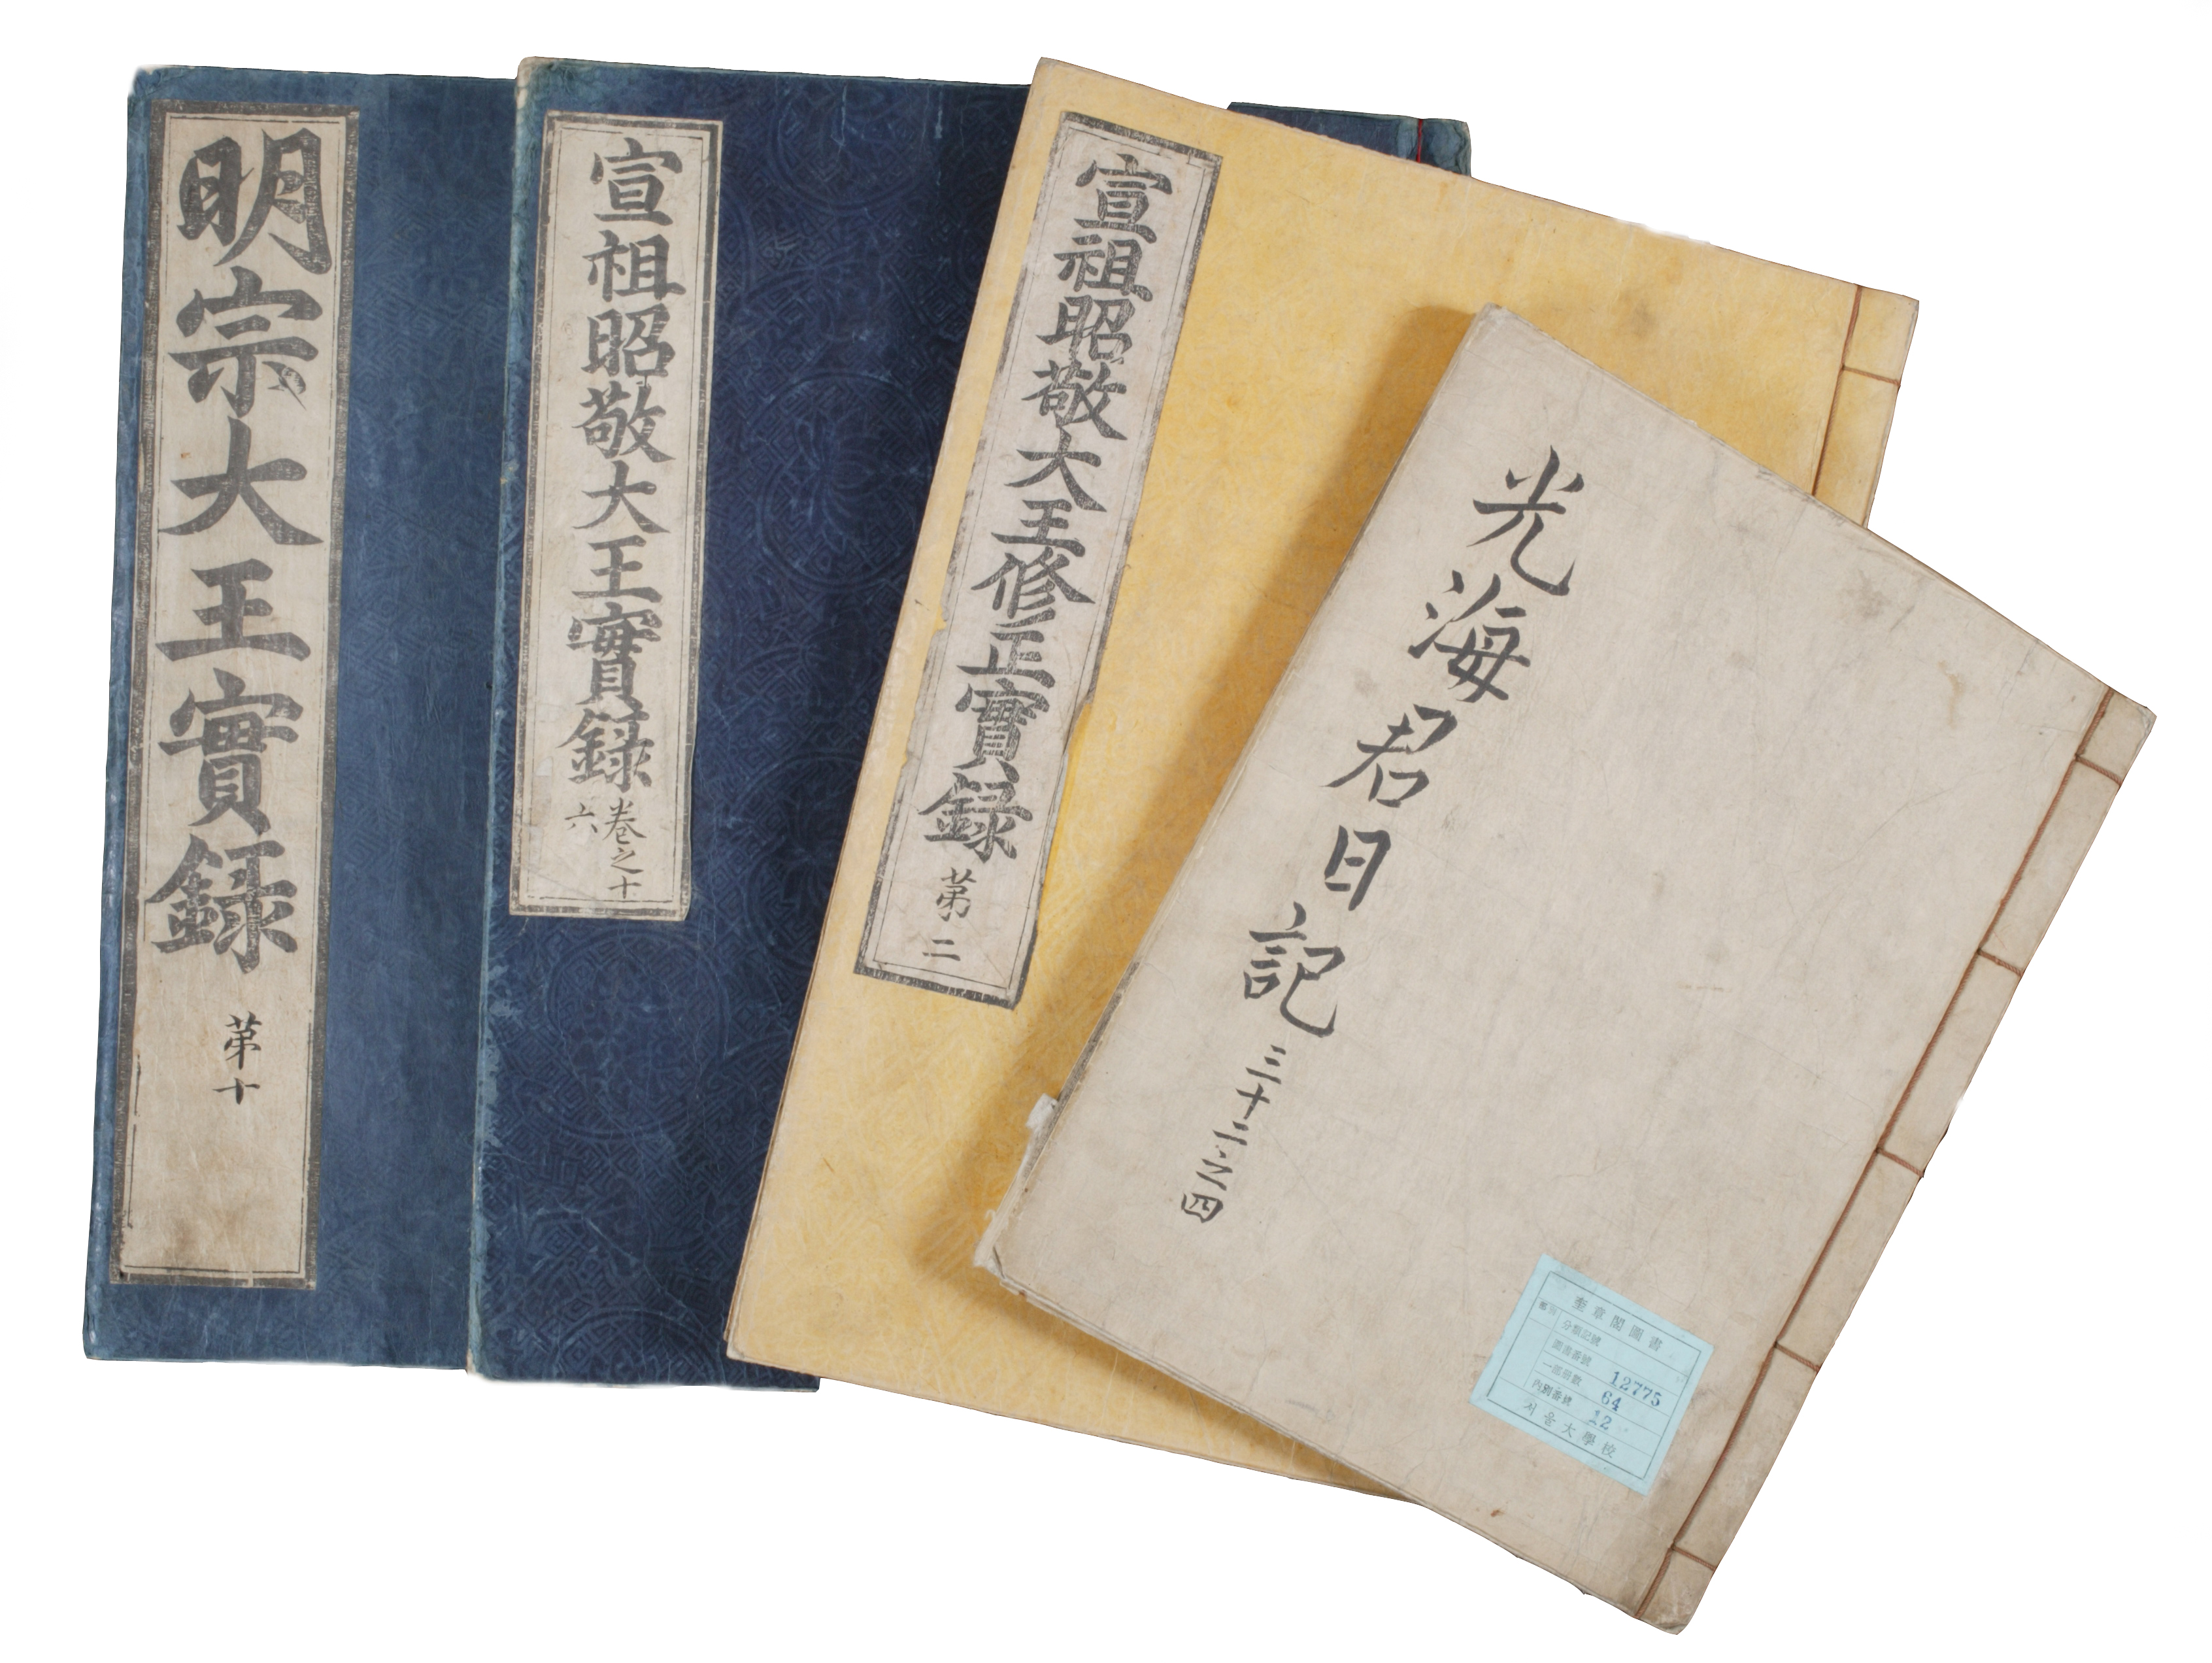 明宗大王實錄 苐十
宣祖昭敬大王實錄 卷之十六
宣祖昭敬大王修正實錄 苐二
光海君日記 三十二之四
奎章閣圖書
分類記號
圖書番號 12775
一部冊數 64
內別番號 12
서울大學校